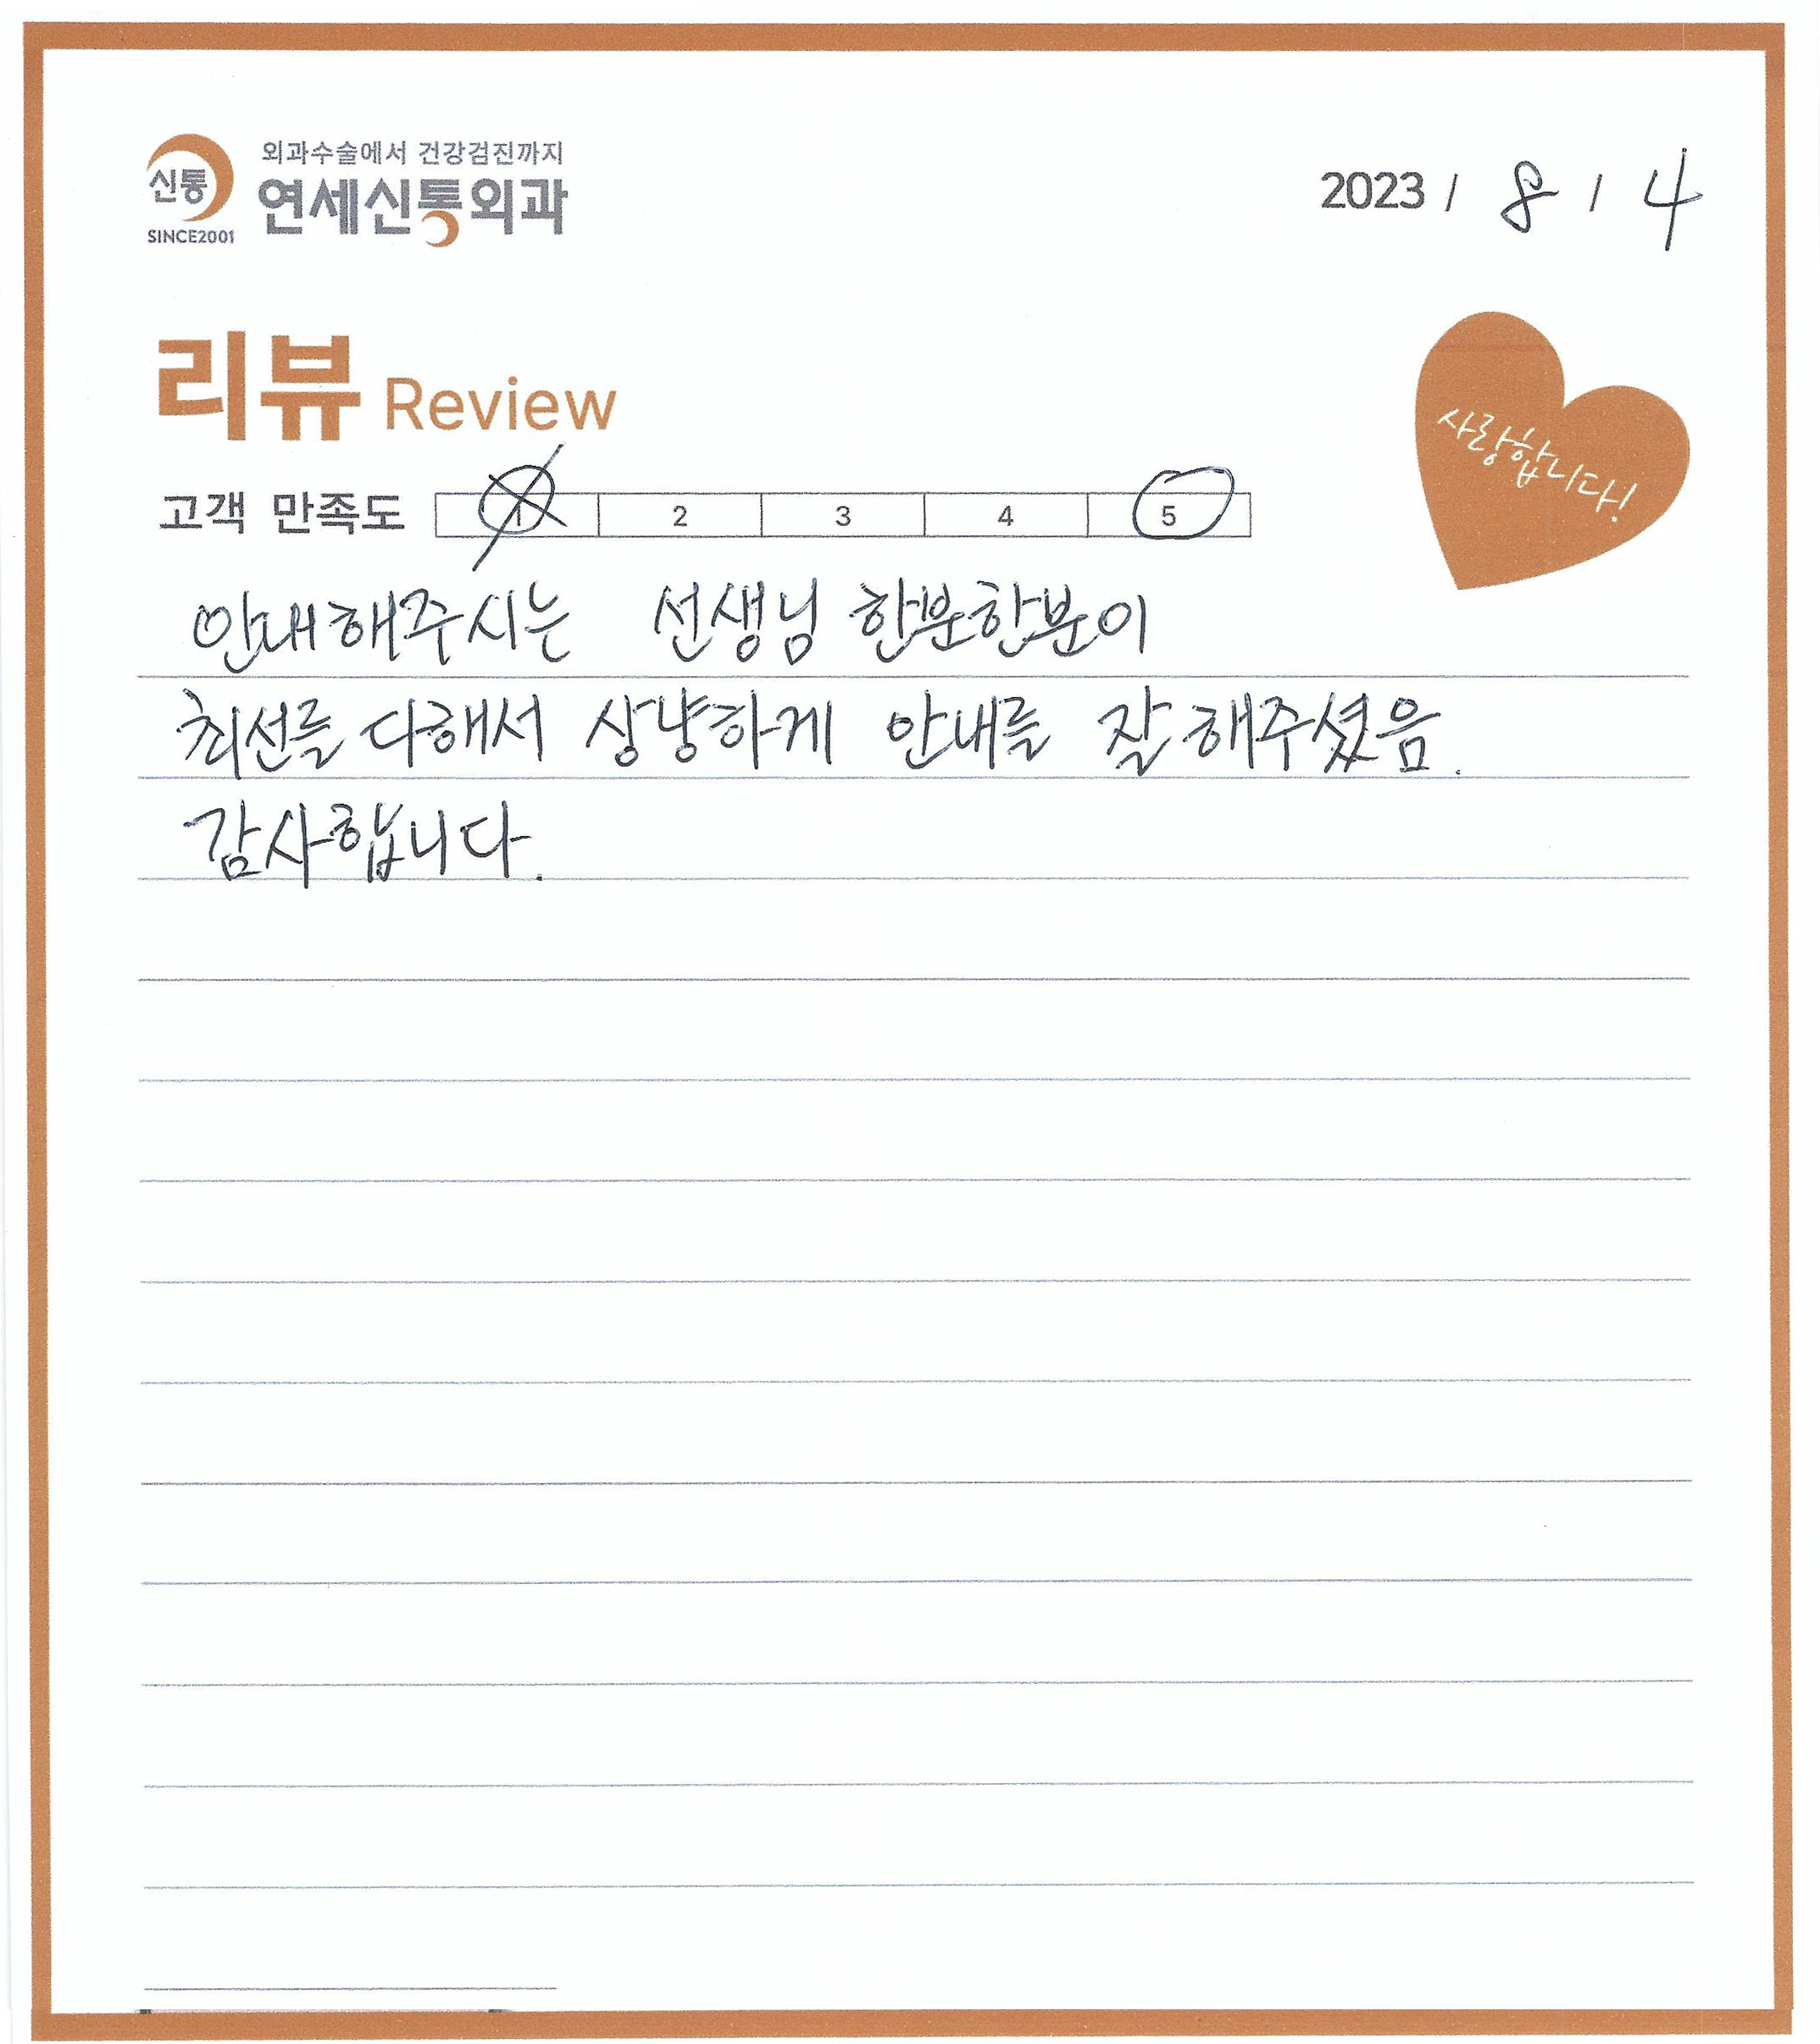 신통
SINCE2001
외과수술에서 건강검진까지
연세신통외과
2023 / 8 / 4
리뷰 Review
사랑합니다!
고객 만족도 1 2 3 4 5
안내해주시는 선생님 한분한분이
최선를 다해서 상냥하게 안내를 잘 해주셨음.
감사합니다.